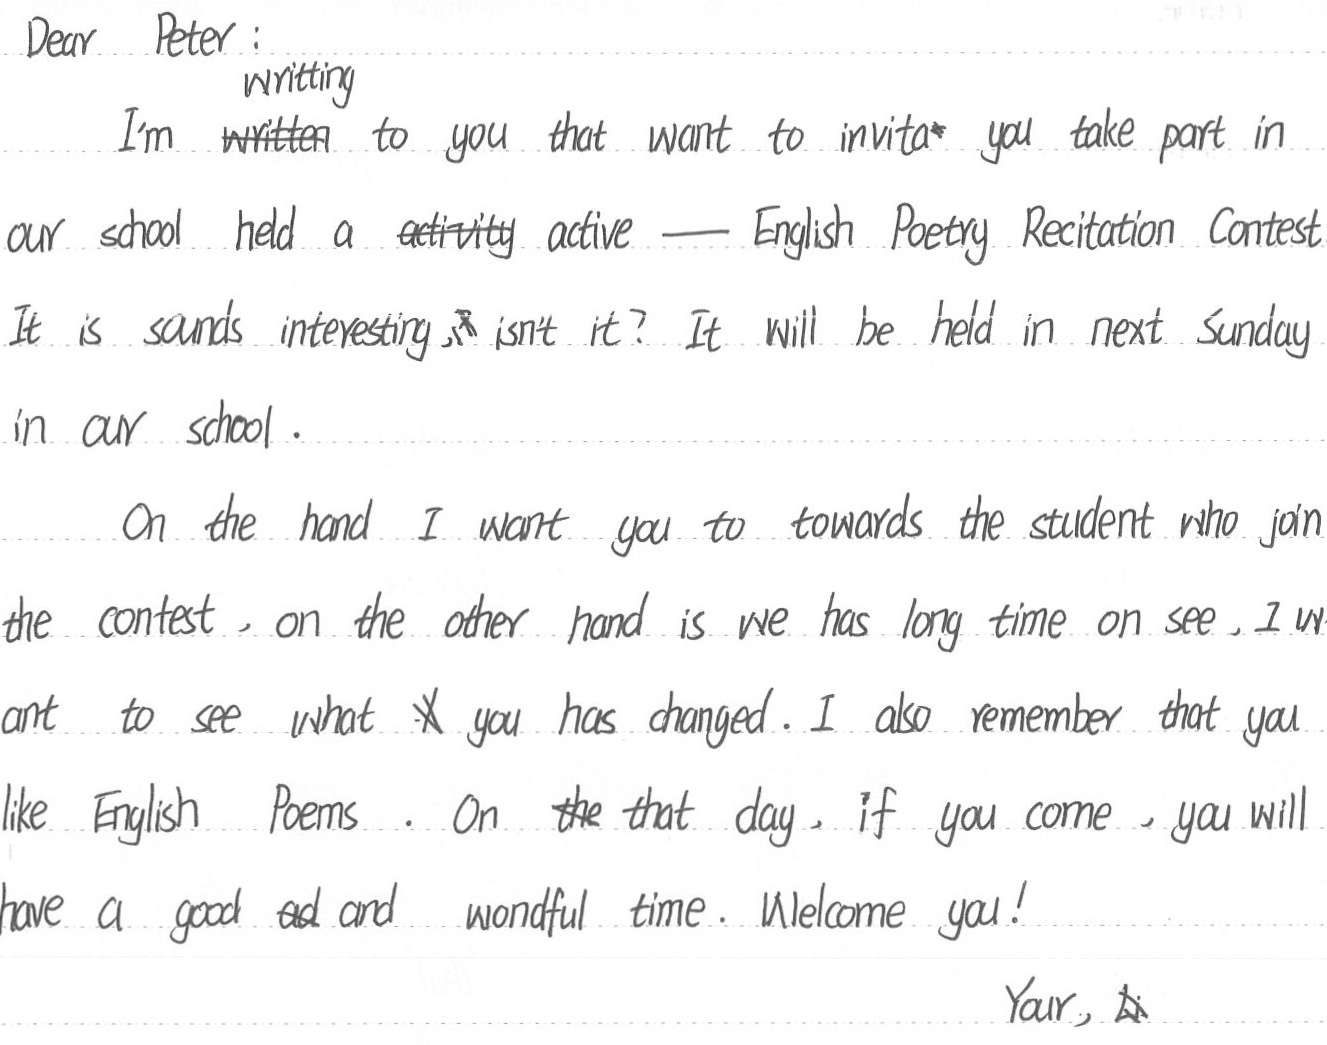 Dear Peter:
writting
I'm written to you that want to invita you take part in
our school held a activity active — English Poetry Recitation Contest
It is sounds interesting, isn't it? It will be held in next Sunday
in our school.
On the hand I want you to towards the student who join
the contest, on the other hand is we has long time on see, I w
ant to see what you has changed. I also remember that you
like English Poems. On the that day, if you come, you will
have a good ad and wondful time. Welcome you!
Your,